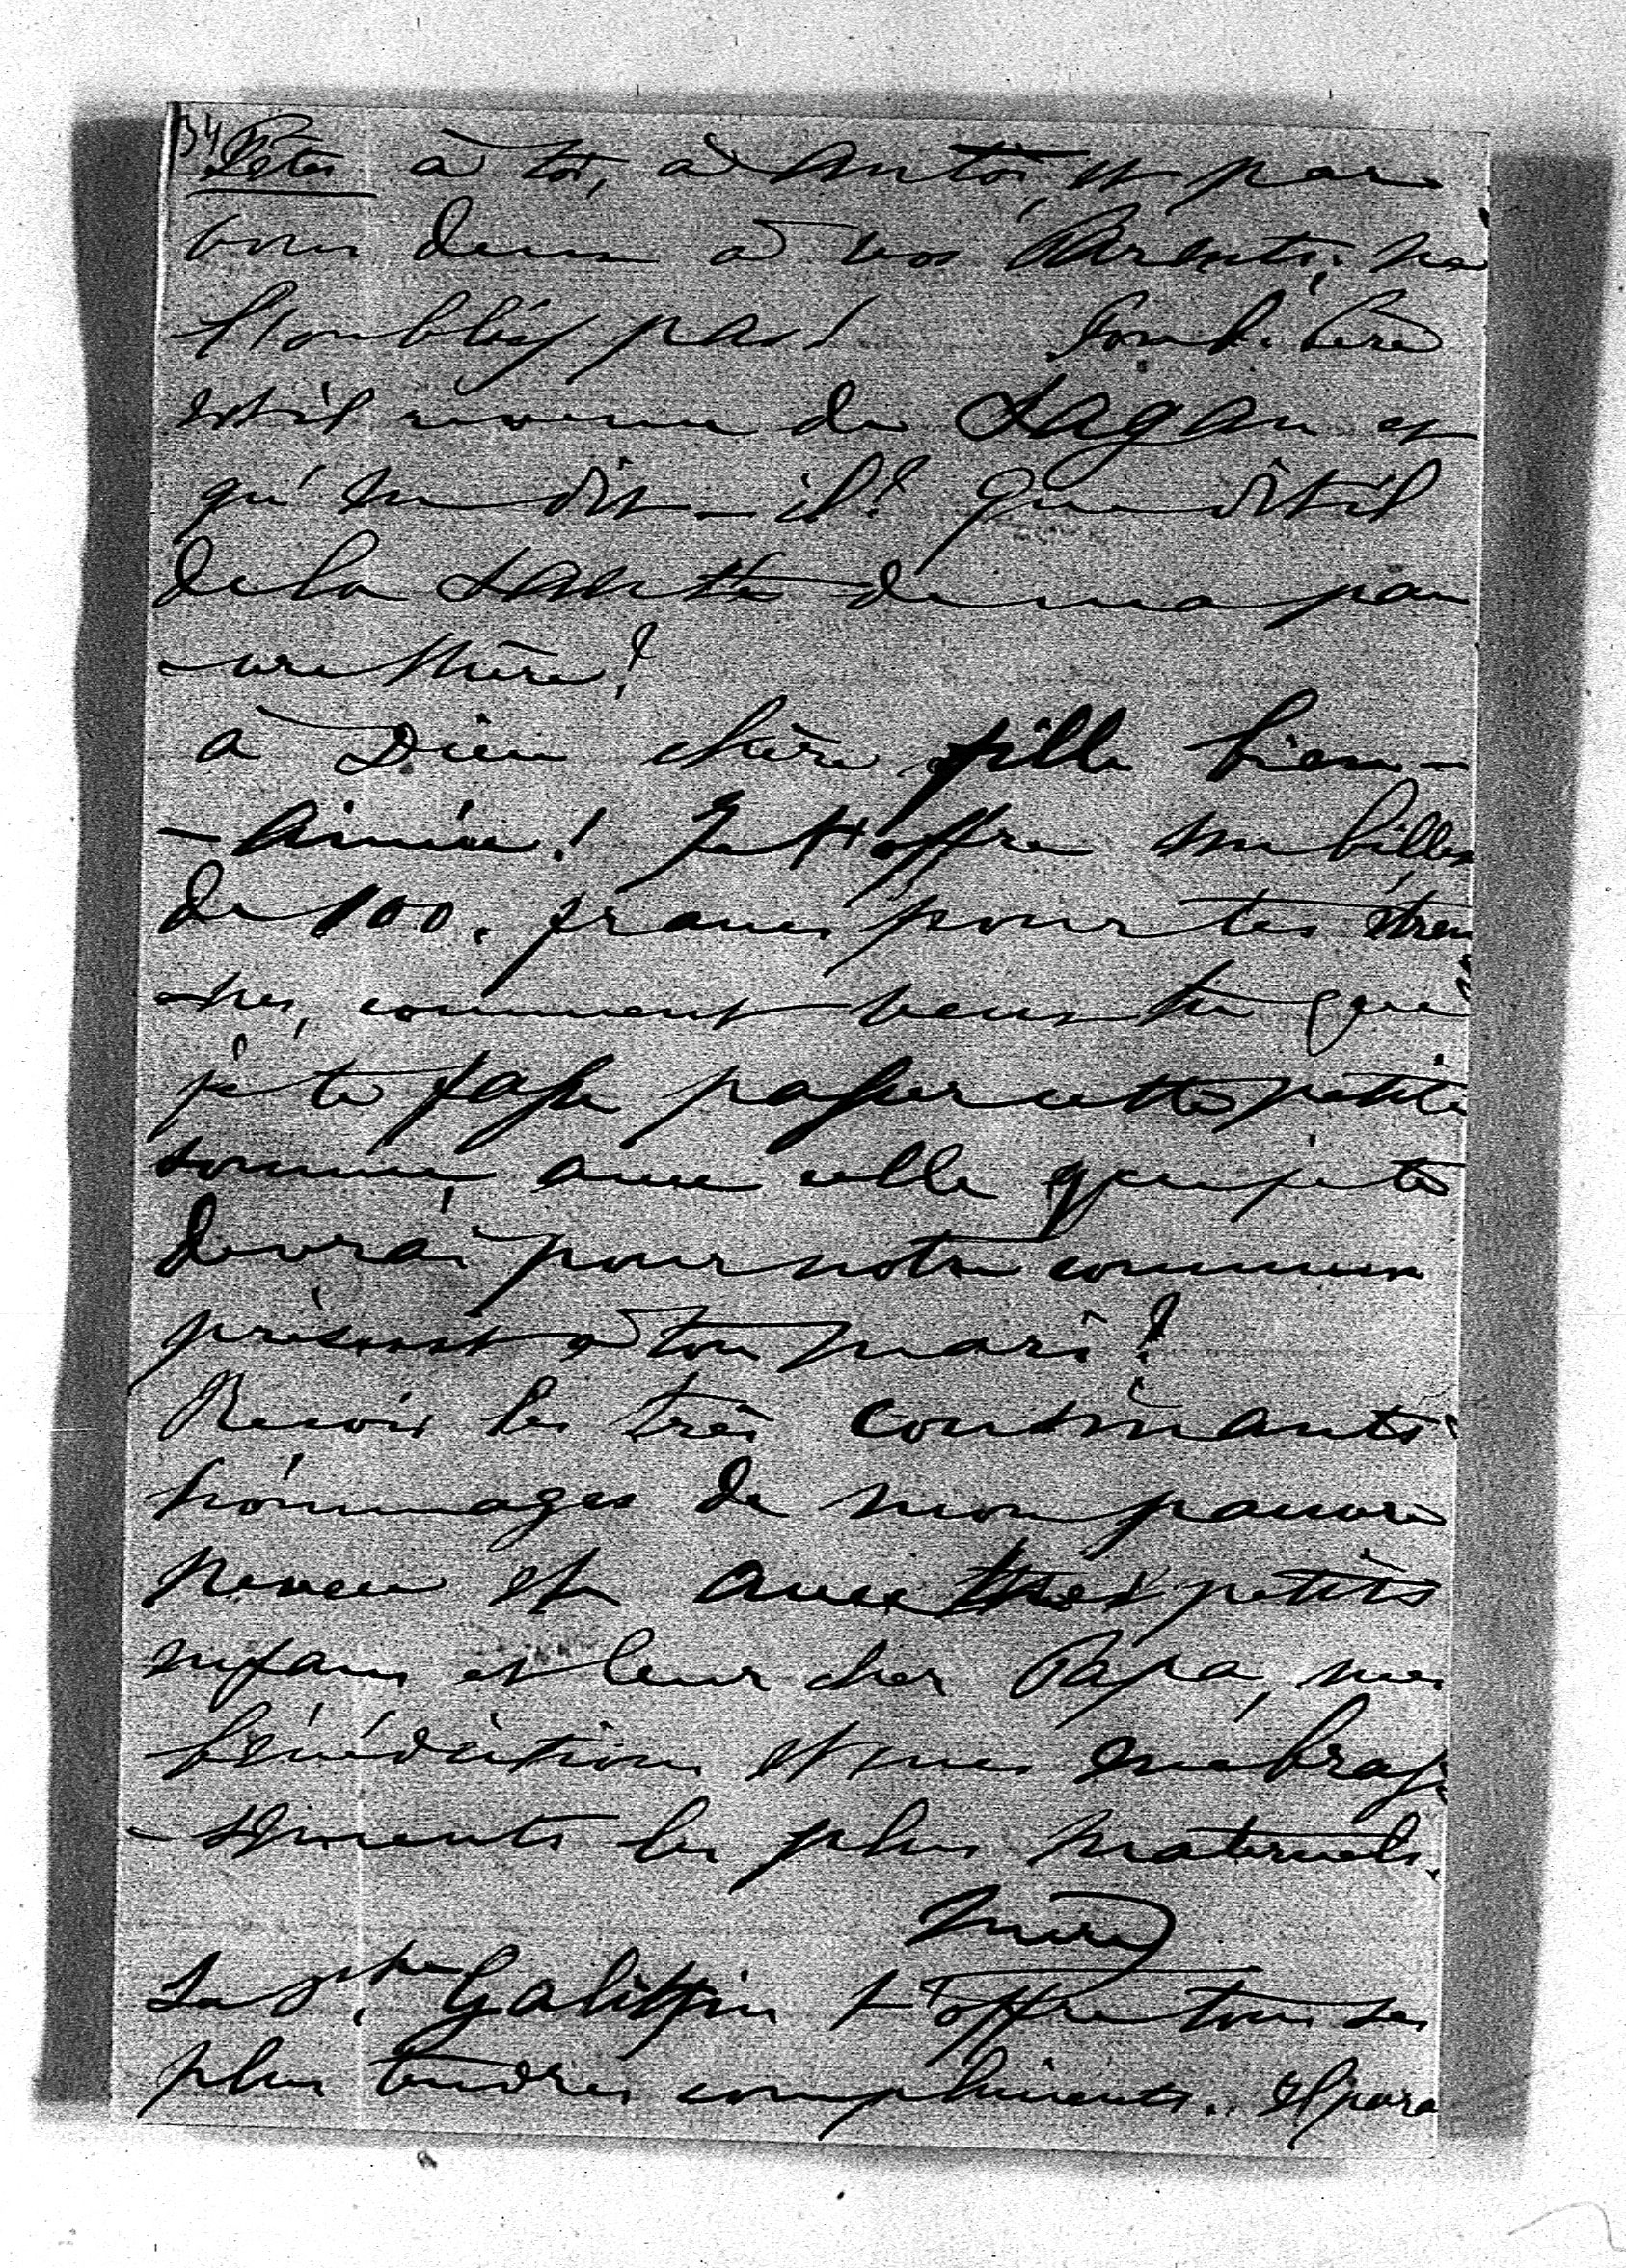 34 Fêtes à toi, à Antoi, et par
vous deux à vos Parents; ne
l'oubliéz pas! Ton b. Père
est-il revenu de Sagan et
qu'en dit-il? Que dit-il
de la santé de ma pau
-vre Mère?
à Dieu chère fille bien-
-Aimée! Je t'offre un billet
de 100. francs pour tes étren
-nes, comment veux tu que
je te fasse passer cette petite
somme, avec celle que je te
devrai pour notre commun
présent à ton mari?
Reçois les très
hommages de mon pauvre
Neveu et avec tes petits
enfans et leur cher Papa, mes
bénédictions et mes embras
-sements les plus maternels.
Mère
La Psse Galitzin t'offre tous ses
plus tendres complimens. Il para